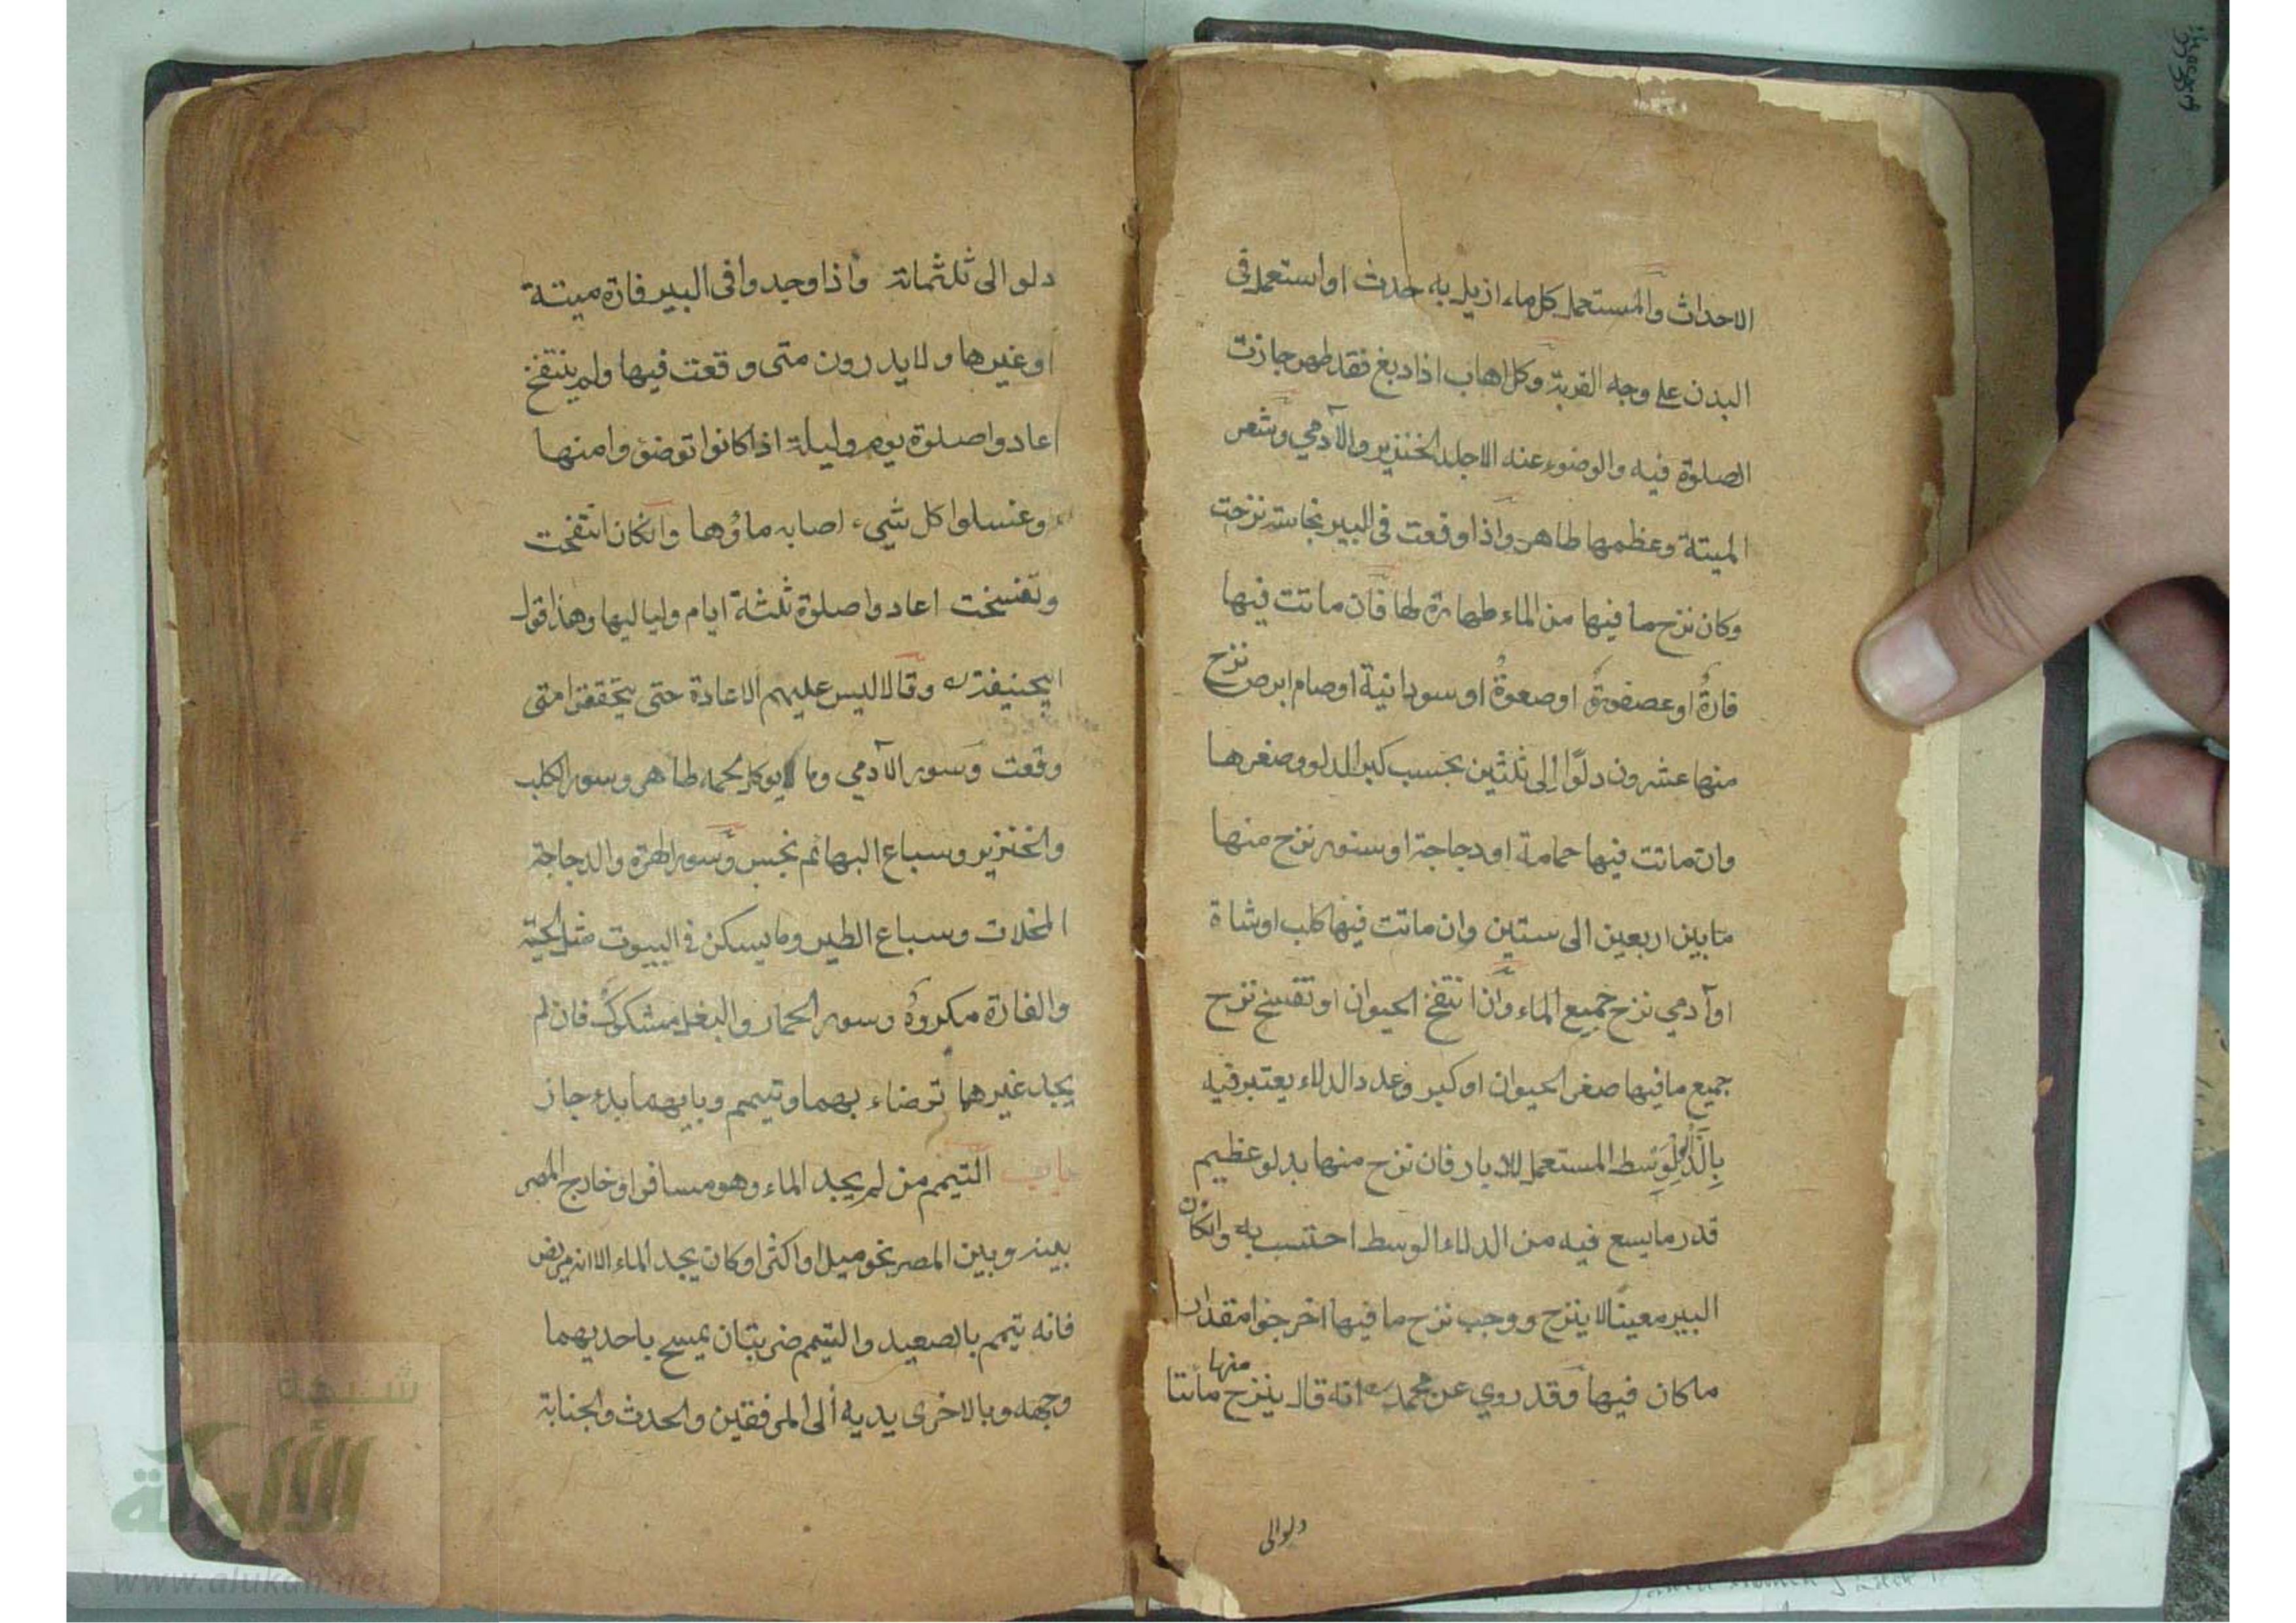 الاحداث والمستعمل كل ماء ازيل به حدث او استعمل في
البدن على وجه القربة وكل اهاب اذا دبغ فقد طهر جازت
الصلوة فيه والوضوء عنه الا جلد الخنزير والآدمي وشعر
الميتة وعظمها طاهر واذا وقعت في البير نجاسة نزحت
وكان نزح ما فيها من الماء طهارة لها فان ماتت فيها
فارة او عصفورة او صعوة او سودانية او صام ابرص نزح
منها عشرون دلوًا الى ثلثين بحسب كبر الدلو وصغرها
وان ماتت فيها حمامة او دجاجة او سنور نزح منها
ما بين اربعين الى ستين وان ماتت فيها كلب او شاة
او آدمي نزح جميع الماء وان انتفخ الحيوان او تفسخ نزح
جميع ما فيها صغر الحيوان او كبر وعدد الدلاء يعتبر فيه
بالدلو الوسط المستعمل للابيار فان نزح منها بدلو عظيم
قدر ما يسع فيه من الدلاء الوسط احتسب به وانكان
البير معينًا لا ينزح ووجب نزح ما فيها اخرجوا مقدار
ما كان فيها وقد روي عن محمد انه قال ينزح منها مأتا
دلو الى
دلو الى ثلثمائة واذا وجدوا في البير فارة ميتة
او غيرها ولا يدرون متى وقعت فيها ولم ينتفخ
اعادوا صلوة يوم وليلة اذا كانوا توضؤوا منها
وغسلوا كل شيء اصابه ماؤها وانكان انتفخت
وتفسخت اعادوا صلوة ثلثة ايام ولياليها وهذا قول
ابيحنيفة وقالا ليس عليهم الاعادة حتى يتحققوا متى
وقعت وسور الآدمي وما يوكل لحمه طاهر وسور الكلب
والخنزير وسباع البهائم نجس وسور الهرة والدجاجة
المخلات وسباع الطير وما يسكن في البيوت مثل الحية
والفارة مكروه وسور الحمار والبغل مشكوك فان لم
يجد غيرهما توضاء بهما وتيمم وبايهما بدء جاز
باب التيمم من لم يجد الماء وهو مسافر او خارج المصر
بينه وبين المصر نحو ميل او اكثر او كان يجد الماء الا انه مريض
فانه تيمم بالصعيد والتيمم ضربتان يمسح باحديهما
وجهه وبالاخرى يديه الى المرفقين والحدث والجنابة
شبكة
الألوكة
www.alukah.net